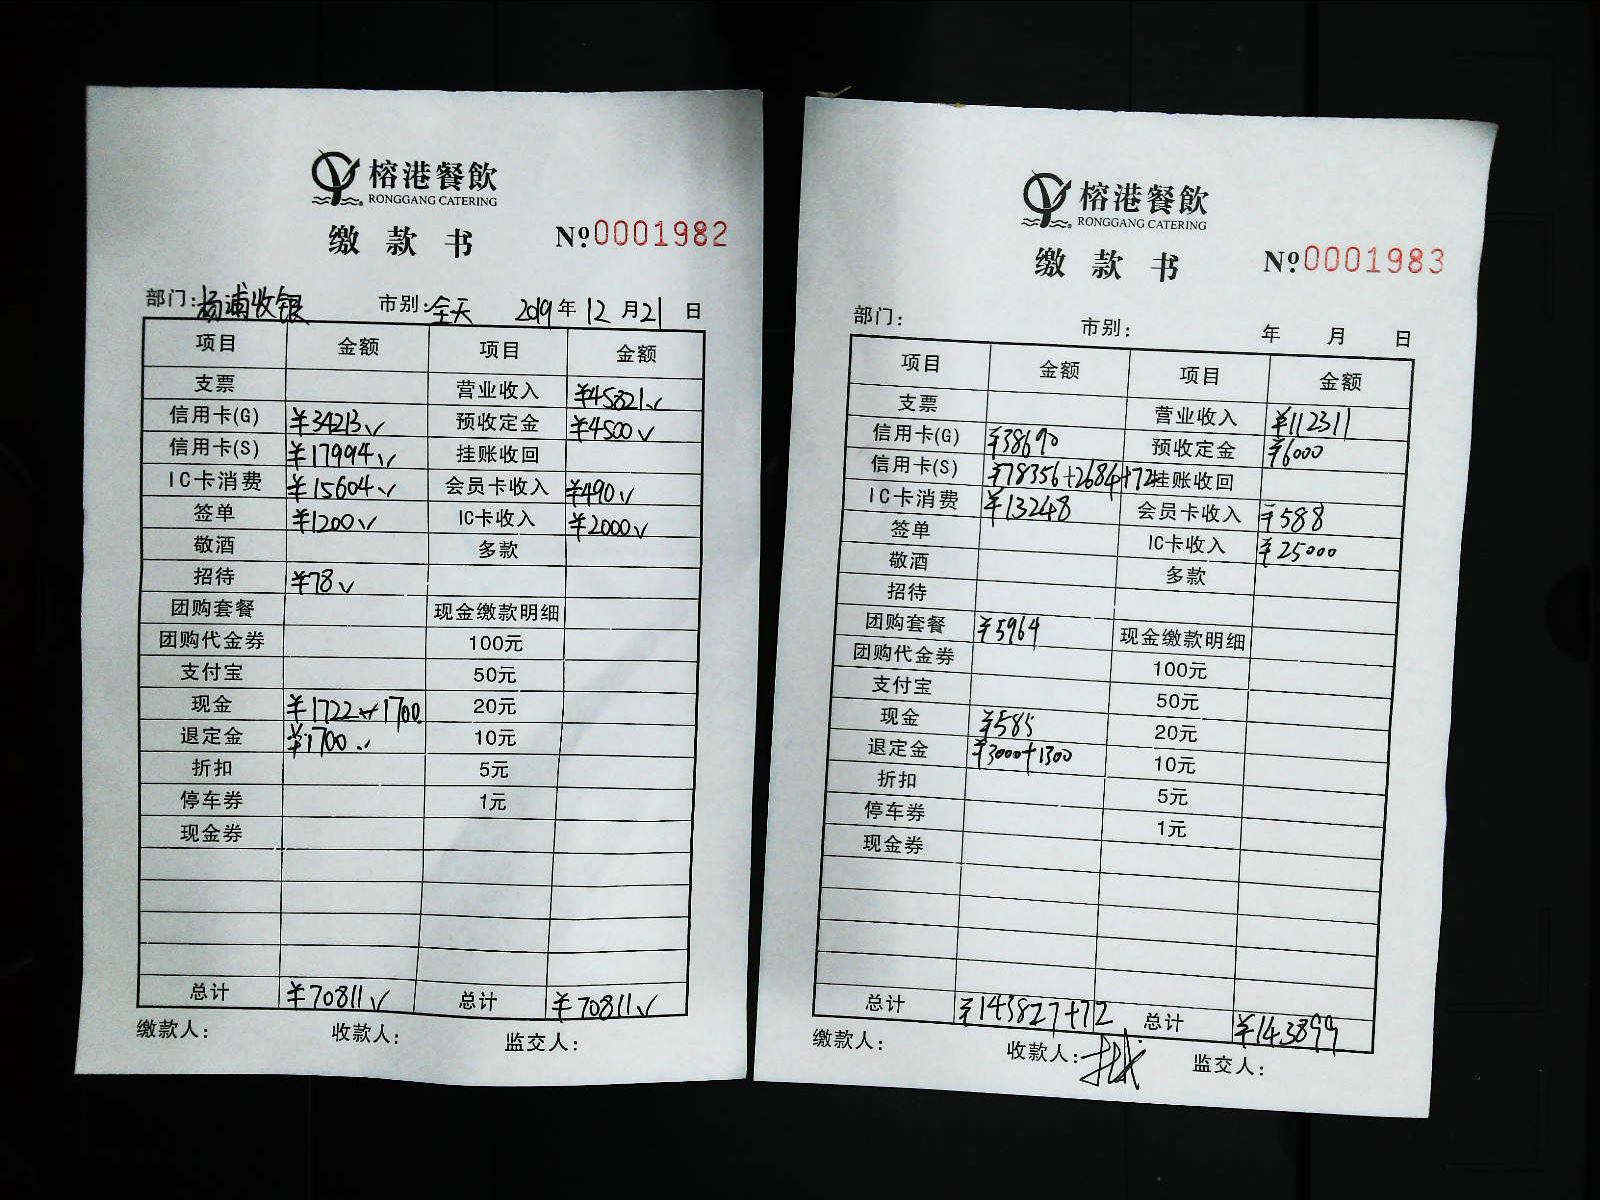 榕港餐飲
RONGGANG CATERING
缴款书 №0001982
部门：杨浦收银 市别：全天 2019年12月21日
项目 金额 项目 金额
支票 营业收入 ¥45821√
信用卡(G) ¥34213√ 预收定金 ¥4500√
信用卡(S) ¥17994√ 挂账收回
IC卡消费 ¥15604√ 会员卡收入 ¥490√
签单 ¥1200√ IC卡收入 ¥2000√
敬酒 多款
招待 ¥78√
团购套餐 现金缴款明细
团购代金券 100元
支付宝 50元
现金 ¥1722√+1700 20元
退定金 ¥1700√ 10元
折扣 5元
停车券 1元
现金券
总计 ¥70811√ 总计 ¥70811√
缴款人： 收款人： 监交人：
榕港餐飲
RONGGANG CATERING
缴款书 №0001983
部门： 市别： 年 月 日
项目 金额 项目 金额
支票 营业收入 ¥112311
信用卡(G) ¥38690 预收定金 ¥6000
信用卡(S) ¥78356+2684+72 挂账收回
IC卡消费 ¥13248 会员卡收入 ¥588
签单 IC卡收入 ¥25000
敬酒 多款
招待
团购套餐 ¥5964 现金缴款明细
团购代金券 100元
支付宝 50元
现金 ¥585 20元
退定金 ¥3000+1300 10元
折扣 5元
停车券 1元
现金券
总计 ¥143827+72 总计 ¥143899
缴款人： 收款人： 监交人：